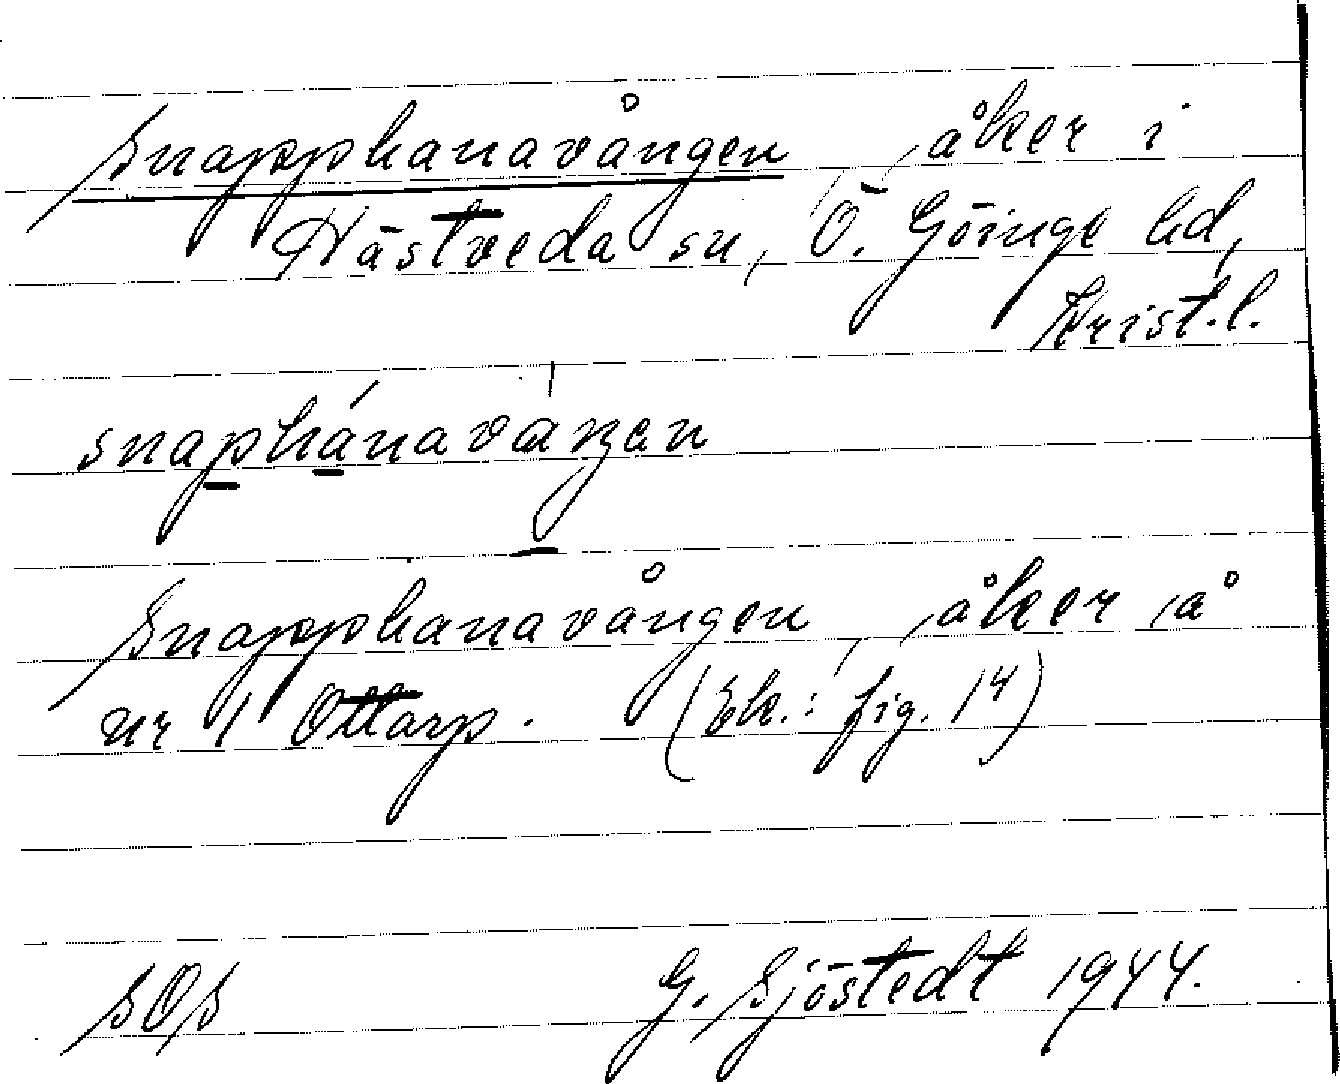 Snapphanavången, åker i
Hästveda sn, Ö. Göinge hd,
Krist.l.
Snapphanavången, åker å
nr 1 Ottarp. (Ek.: fig. 14)
SOS G. Sjöstedt 1944.